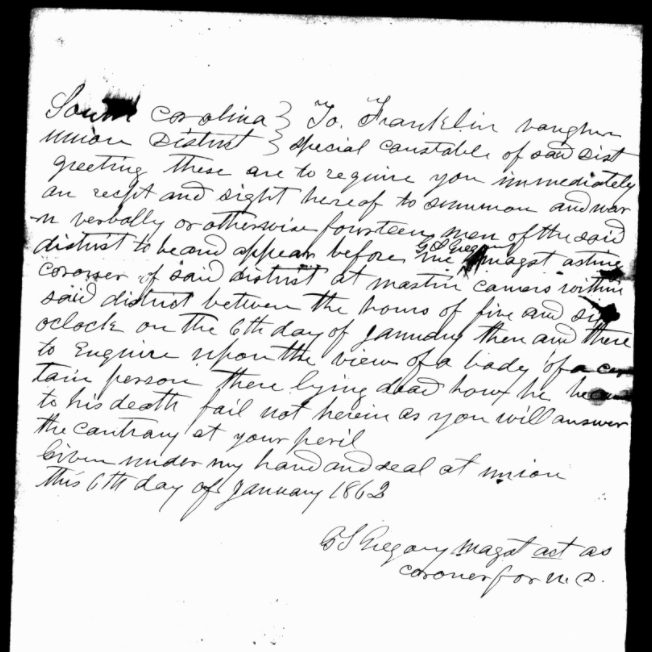 South Carolina } To. Franklin vaughn
union District } special constable of said Dist
greeting these are to require you immediately
on recpt and sight hereof to summon and war
n verbally or otherwise fourteen men of the said
G S Gregory
district to be and appear before me magst acting
coroner of said district at mastin within
said district between the hours of five and six
oclock on the 6th day of January then and there
to Enquire upon the view of a body of a cer
tain person there lying dead how he
to his death fail not herein as you will answer
the contrary at your peril
Given under my hand and seal at union
this 6th day of January 1862
G S Gregory magst act as
coroner for u. D.